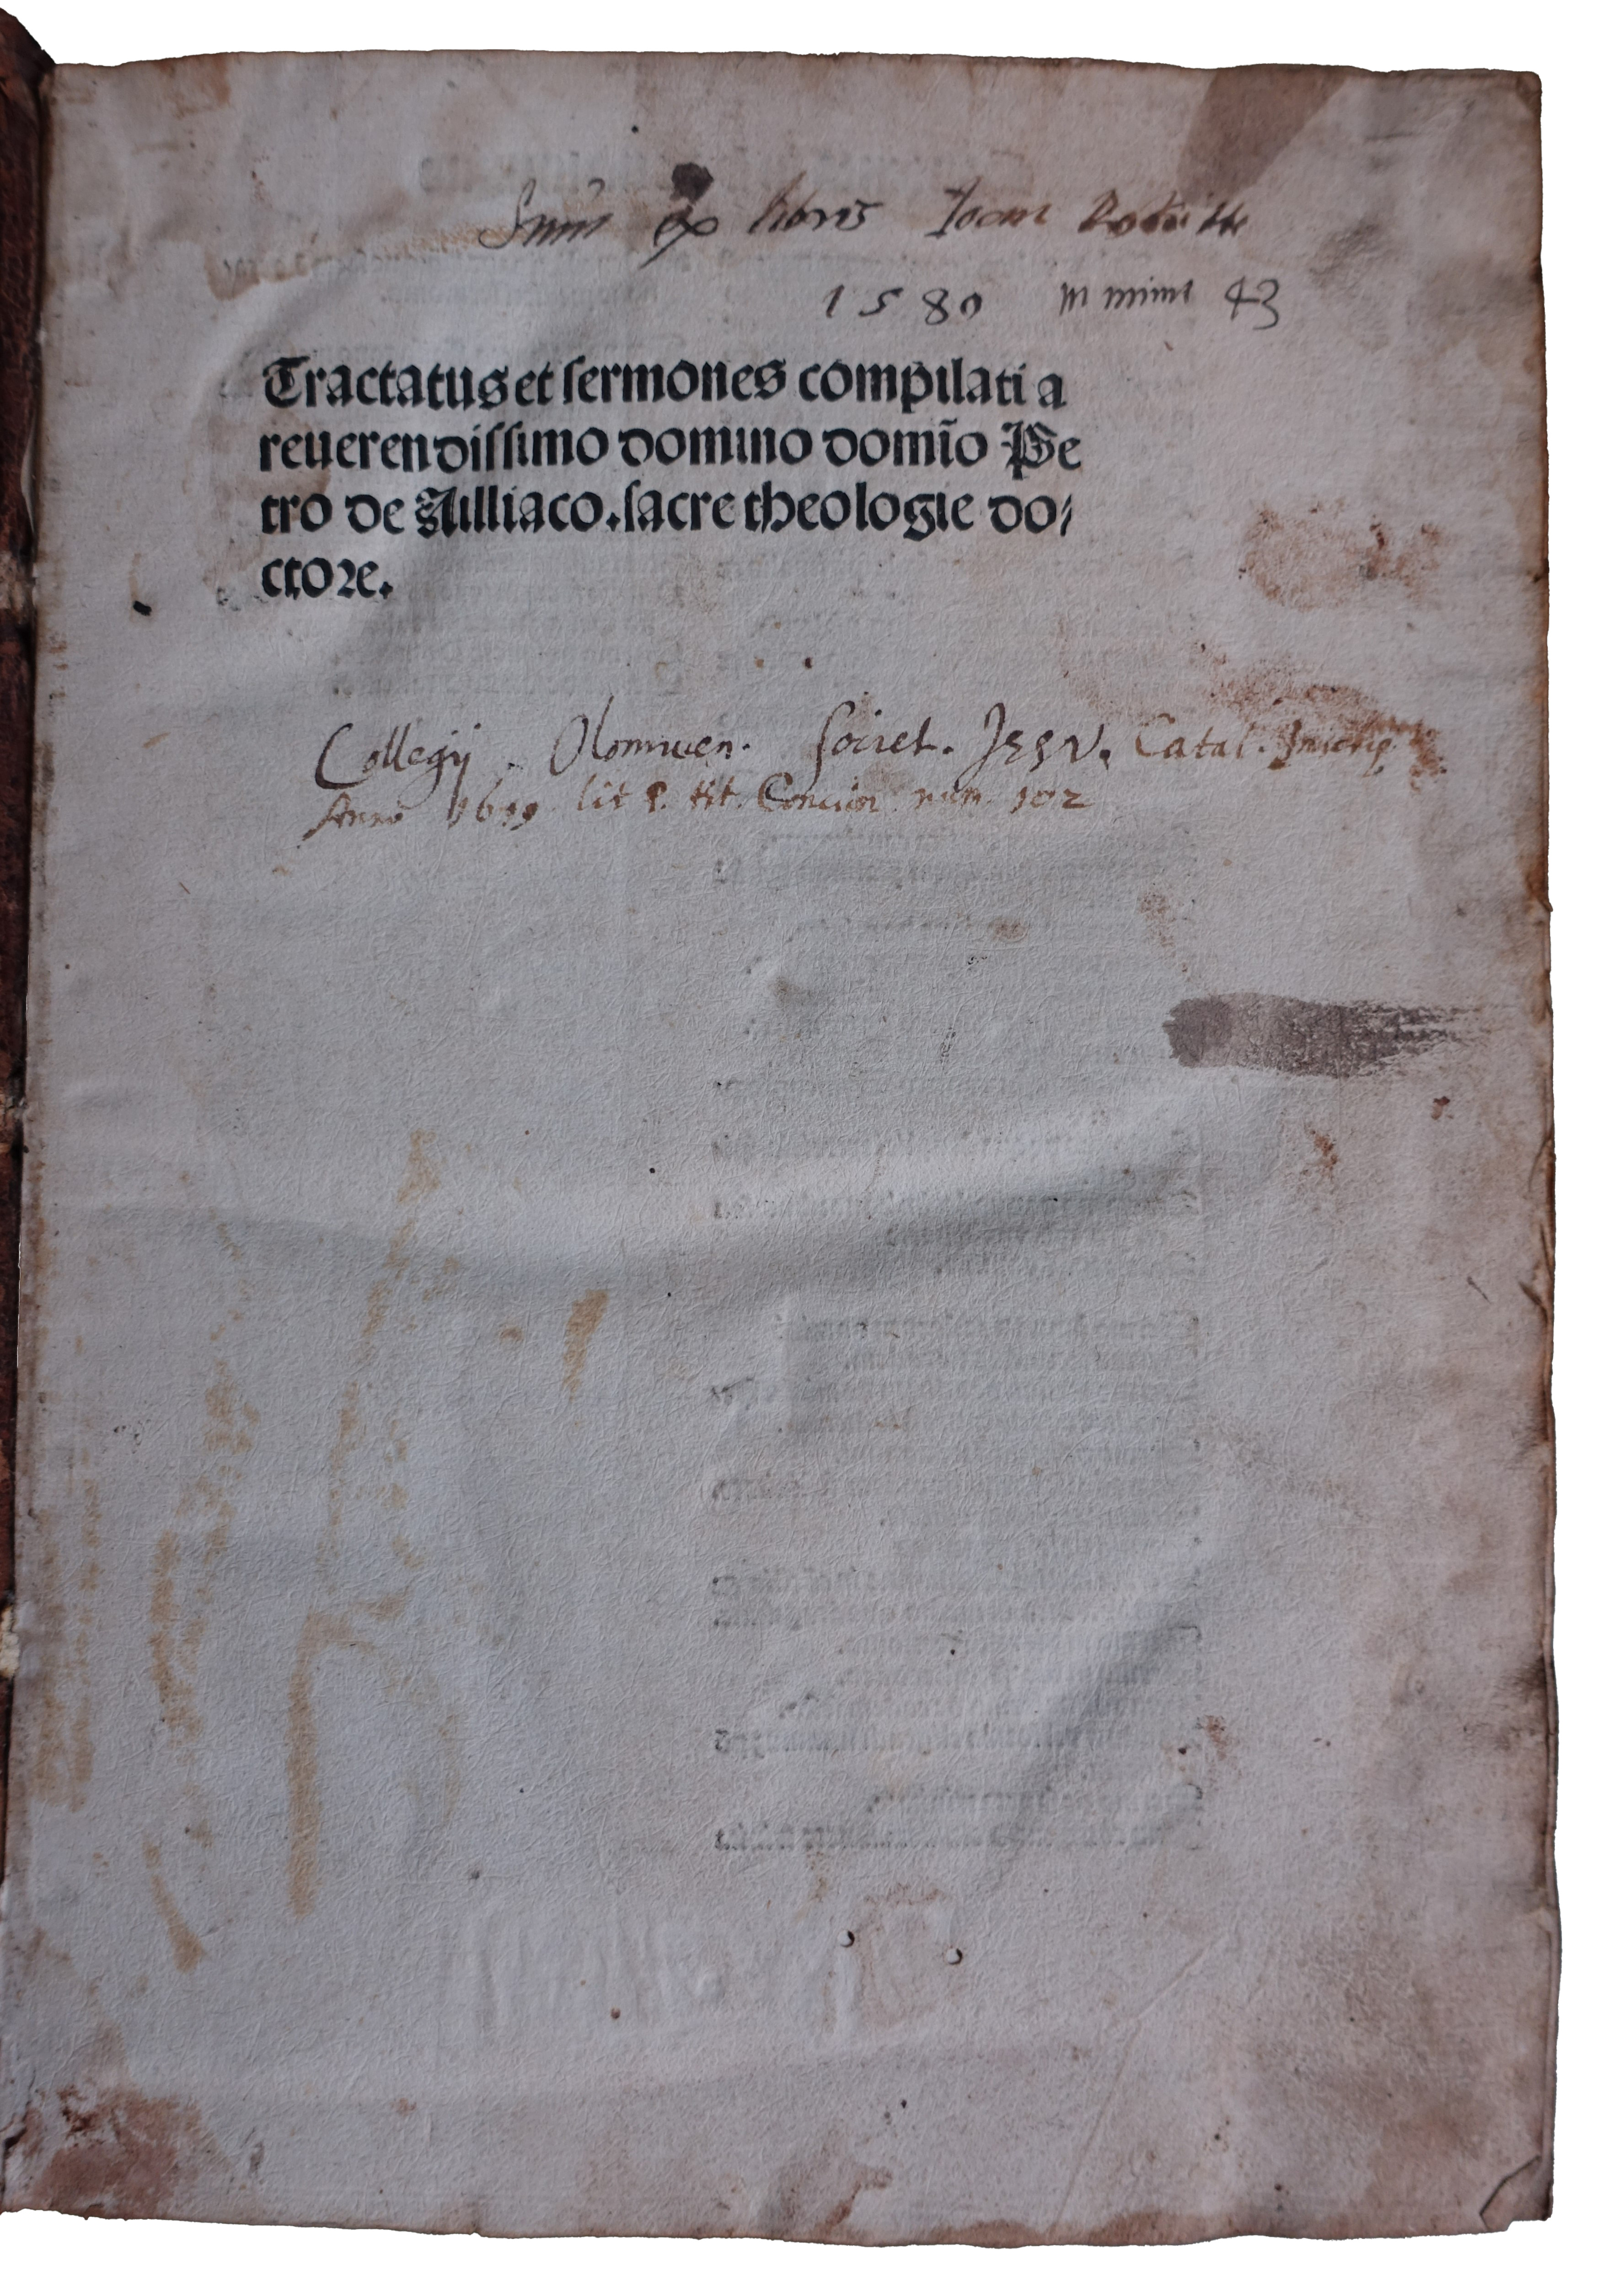 Sum ex libris Ioan
1580 in mimi 43
Tractatus et ſermones compilati a
reuerendiſſimo domino domĩo Pe
tro de Ailliaco. ſacre theologie do/
ctore.
Collegij Olomucen. Societ. Jesv. Catal. Inscrip.
Anno lit P. tit. Concion num. 102